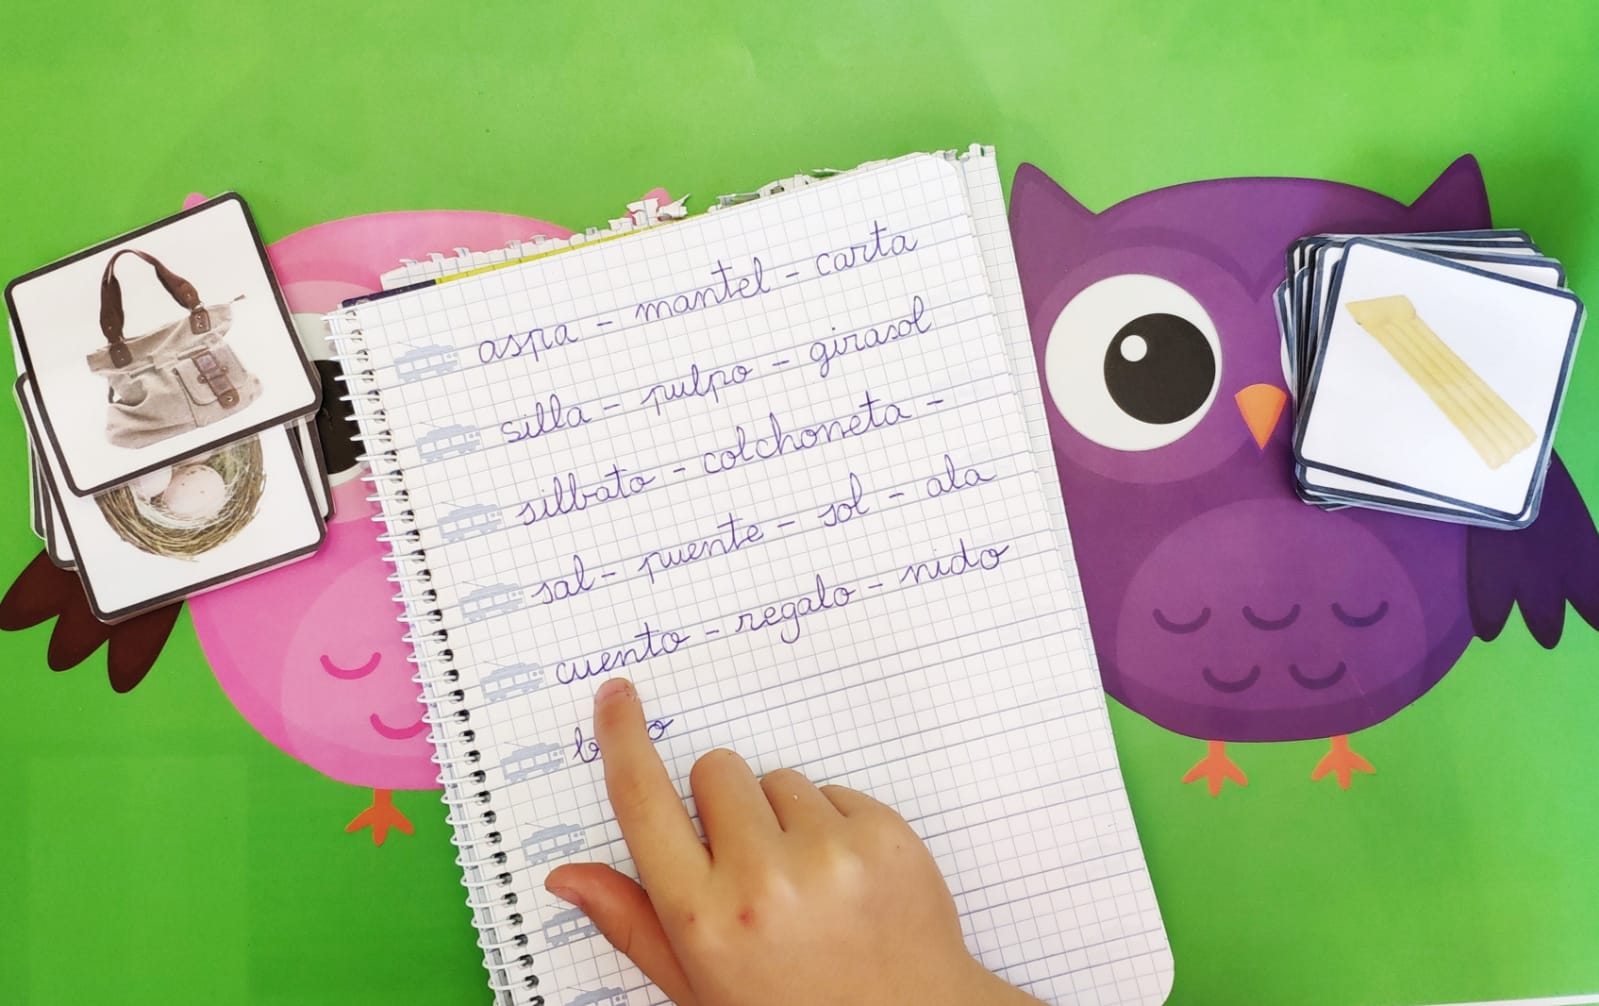 aspa - mantel - carta
silla - pulpo - girasol
silbato - colchoneta -
sal - puente - sol - ala
cuento - regalo - nido